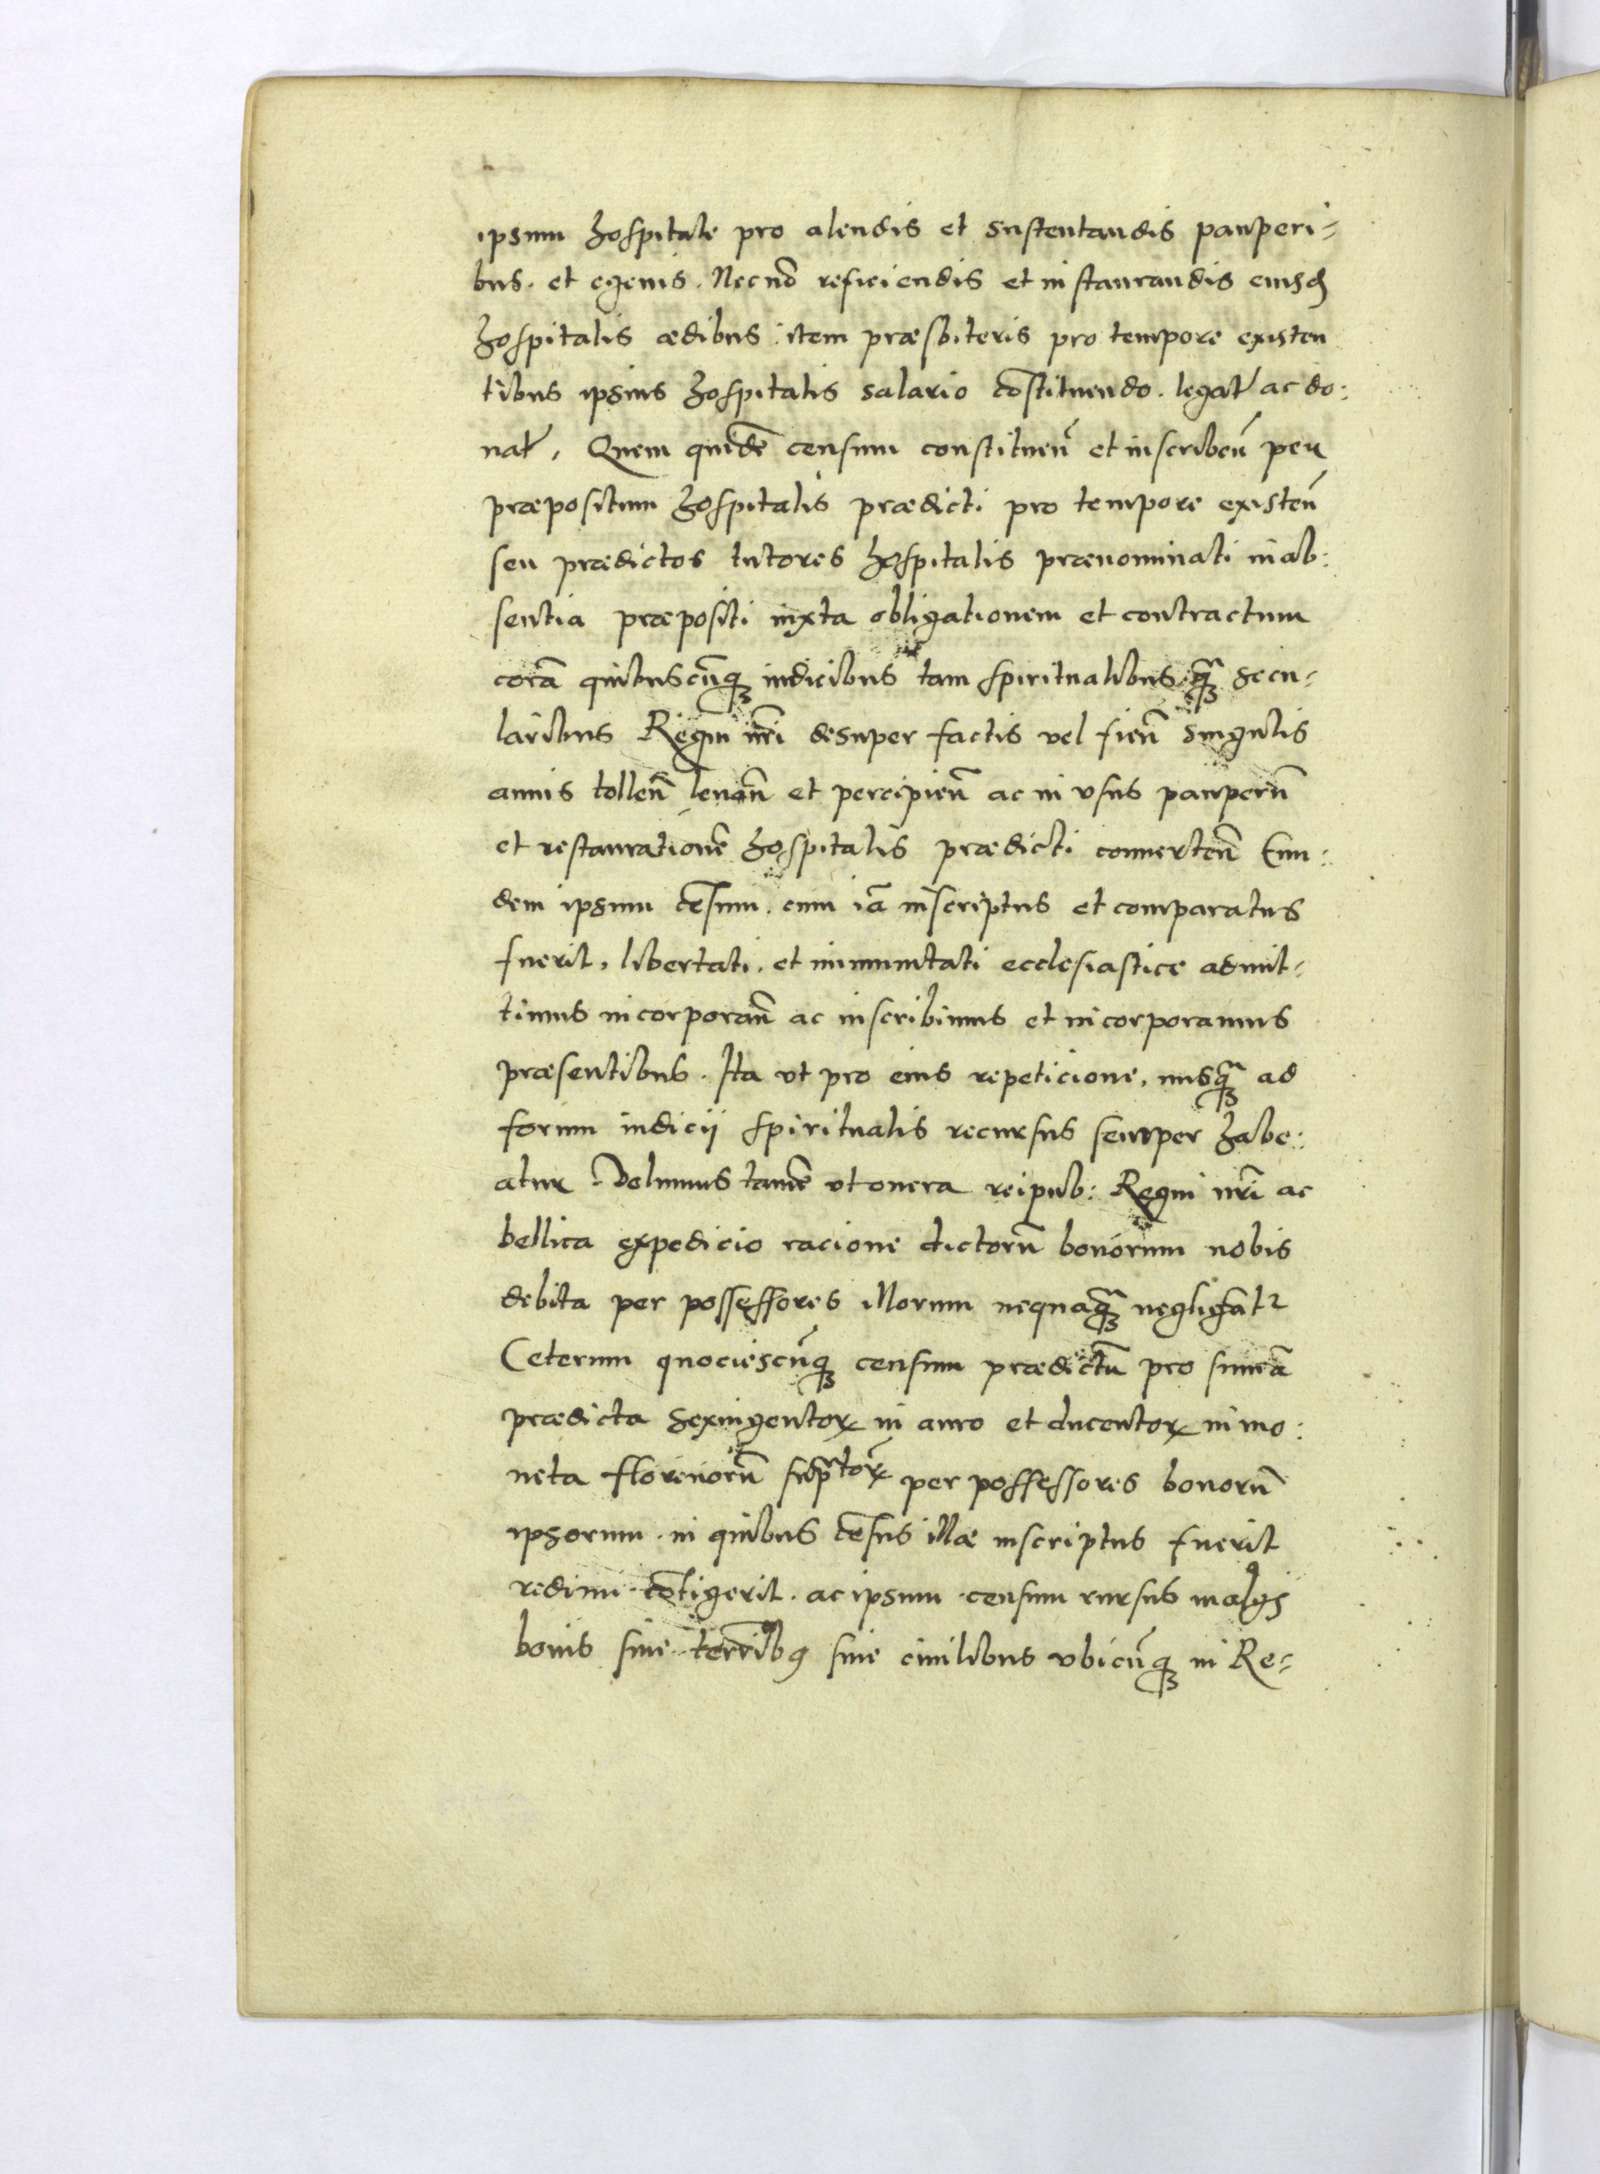 ipsum hospitale pro alendis et sustentandis pauperi-
bus. et egenis. Necnō reficiendis et instaurandis eiusđ
hospitalis ædibus: item præsbiteris pro tempore existen
tibus ipsius hospitalis salario cōstituendo. legat̄ ac do:
nat̄. Quem quidē censum constituen̄ et inscriben̄ per
præpositum hospitalis prædicti pro tempore existen̄
seu prædictos tutores hospitalis prænominati in ab:
sentia præpositi iuxta obligationem et contractum
corā quibuscūq₃ iudicibus tam spiritualibus q̄₃ secu-
laribus Regni nr̄i desuper factis vel fien̄ singulis
annis tollen̄ leuan̄ et percipien̄ ac in vsus pauperū
et restaurationē hospitalis prædicti conuerten̄ Eun:
dem ipsum cēsum. cum iā inscriptus et comparatus
fuerit, libertati. et immunitati ecclesiastice admit-
timus incorporan̄ ac inscribimus et incorporamus
præsentibus. Ita vt pro eius repeticione, nusq̄₃ ad
forum iudicij spiritualis recursus semper habe:
atur. Volumus tamē vt onera reipub: Regni nr̄i ac
bellica expedicio racione dictorū bonorum nobis
debita per possessores illorum nequaq̄₃ negligāt²
Ceterum quociescūq₃ censum prædictū pro sumā
prædicta sexingentoꝝ in auro et ducentoꝝ in mo:
neta florenorū sup̄toꝝ per possessores bonorū
ipsorum. in quibus cēsus illæ inscriptus fuerit
redimi cōtigerit. ac ipsum censum rursus in alijs
bonis siue terr̄ibꝰ siue ciuilibus vbicūq₃ in Re-